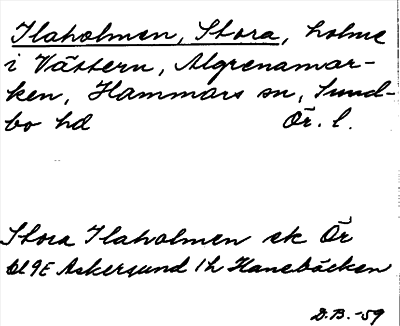 Ilaholmen, Stora, holme
i Vättern, Algrenamar-
ken, Hammars sn, Sund-
bo hd Ör. l.
Stora Ilaholmen ek Ör
bl 9E Askersund 1h Hanebäcken
D.B.-59